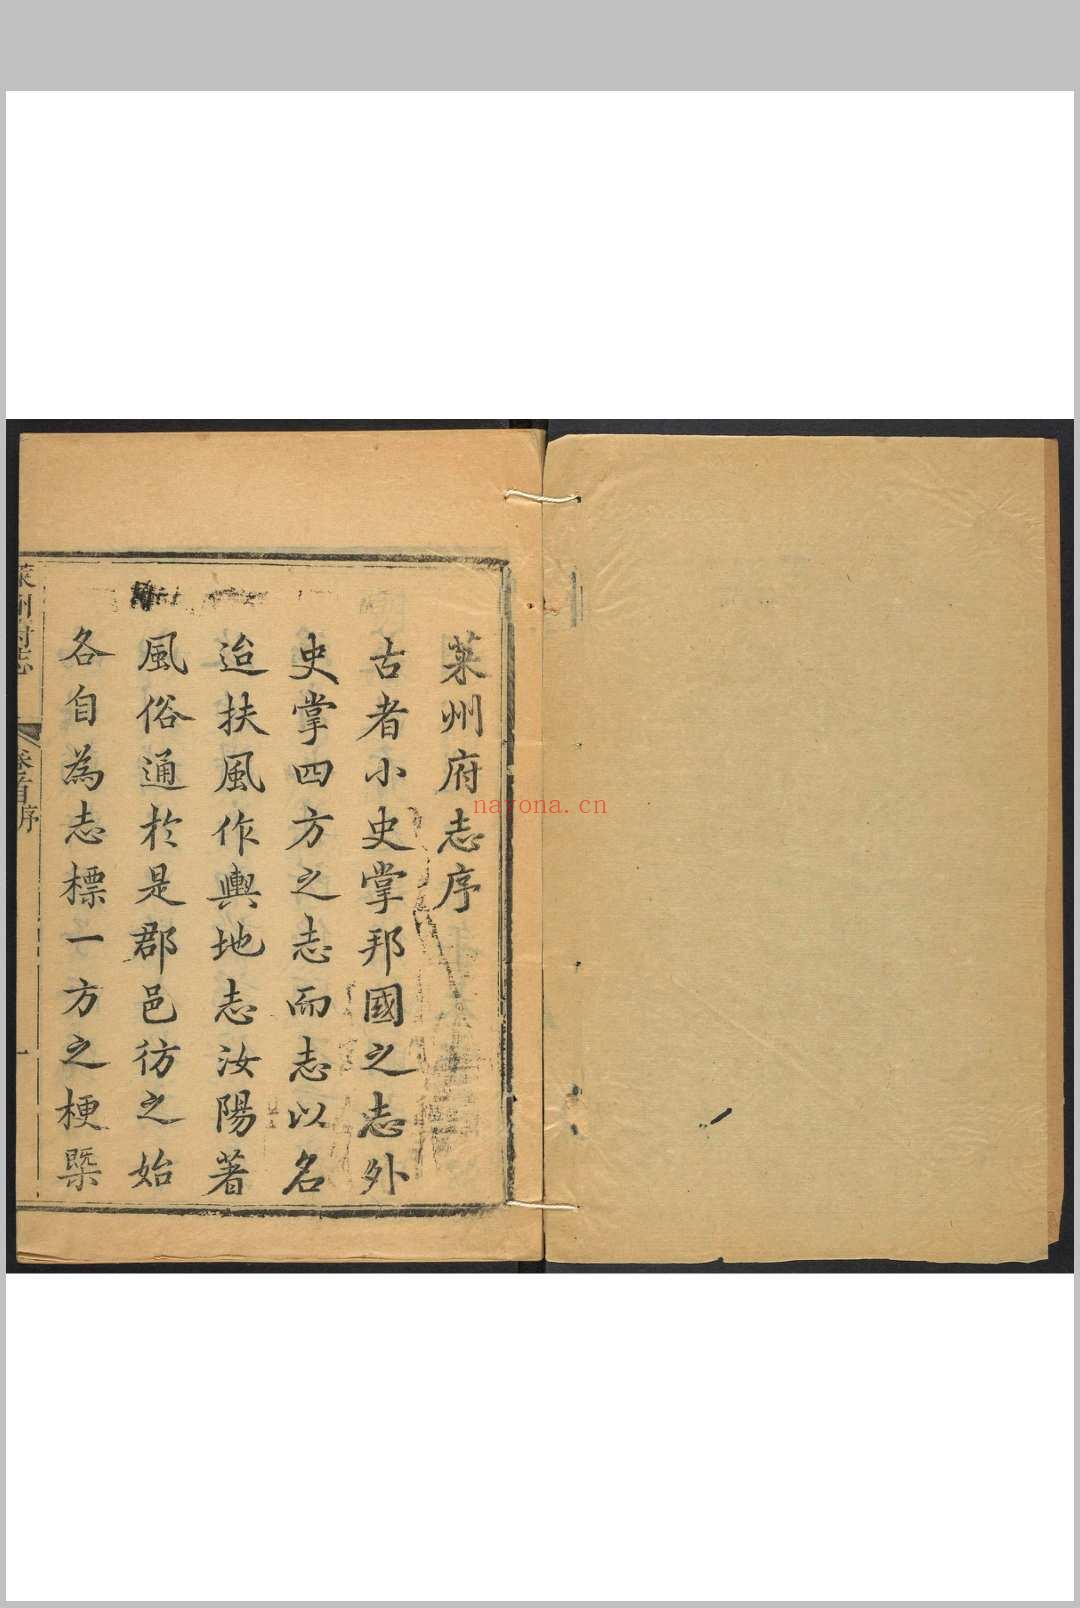 萊州府志序
古者小史掌邦國之志外
史掌四方之志而志以名
迨扶風作輿地志汝陽著
風俗通於是郡邑彷之始
各自為志標一方之梗槩
萊州府志
卷首序
一
nayona.cn